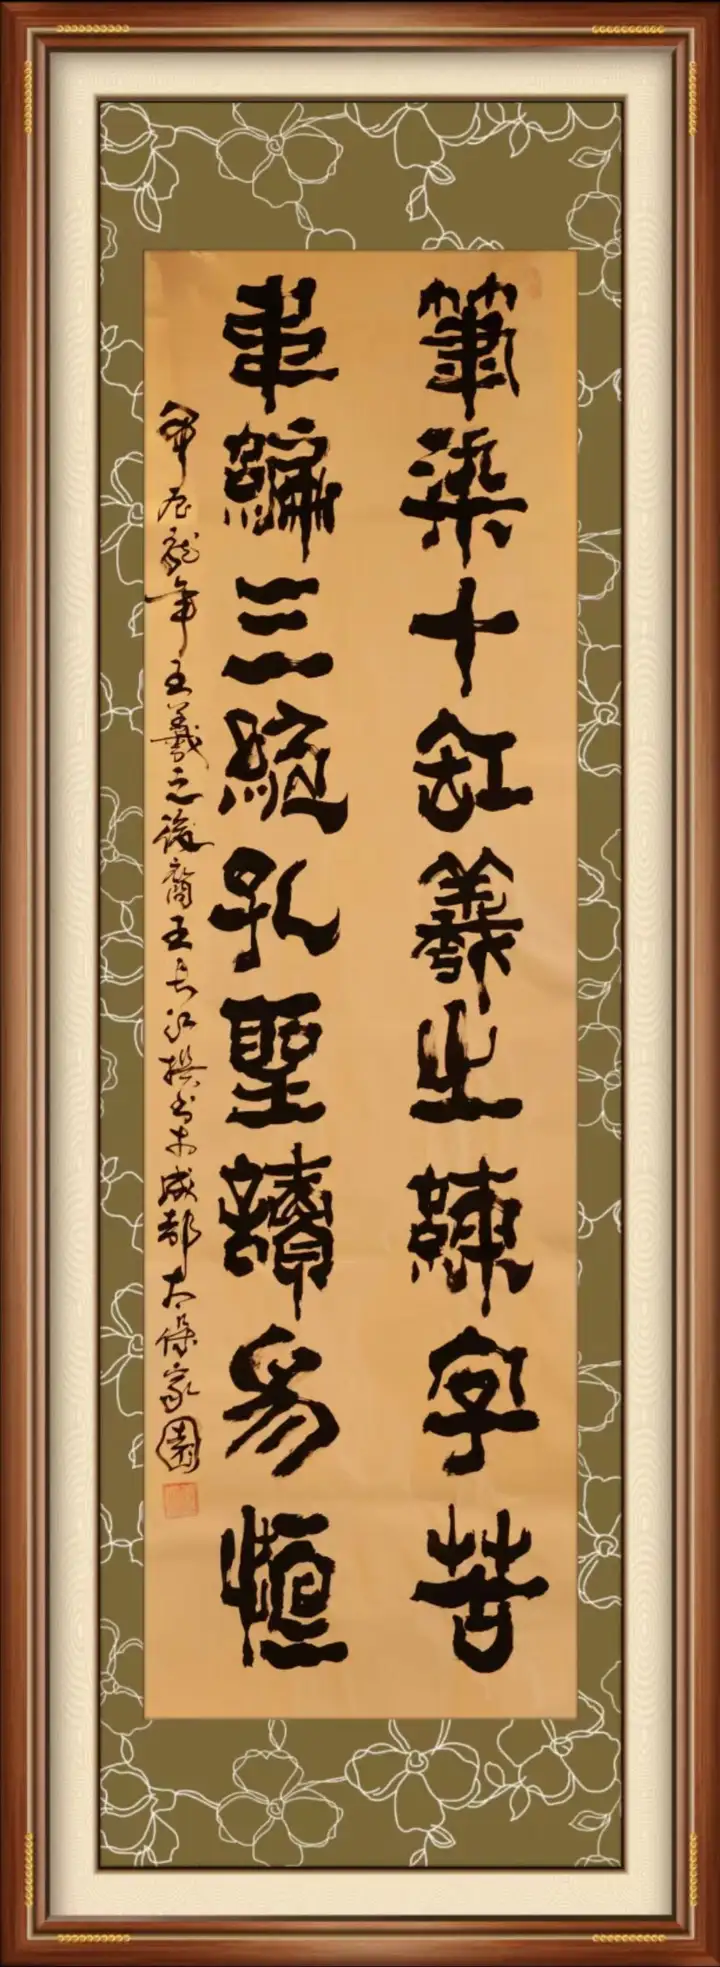 筆染十缸羲之練字苦
韋編三絕孔聖讀易恒
甲辰龍年王羲之後裔王長江撰書於成都太保家園